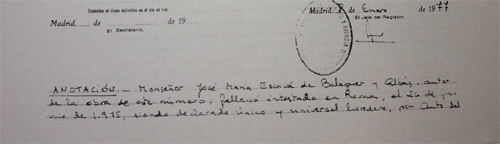 Expedido el título definitivo en el día de hoy.
Madrid, de de 19
El Secretario,
Madrid, de Enero de 1977
El Jefe del Registro,
ANOTACIÓN.- Monseñor José María Escrivá de Balaguer y Albás, autor
de la obra de este número, falleció intestado en Roma, el 26 de ju-
nio de 1.975, siendo declarado único y universal heredero, por Auto del